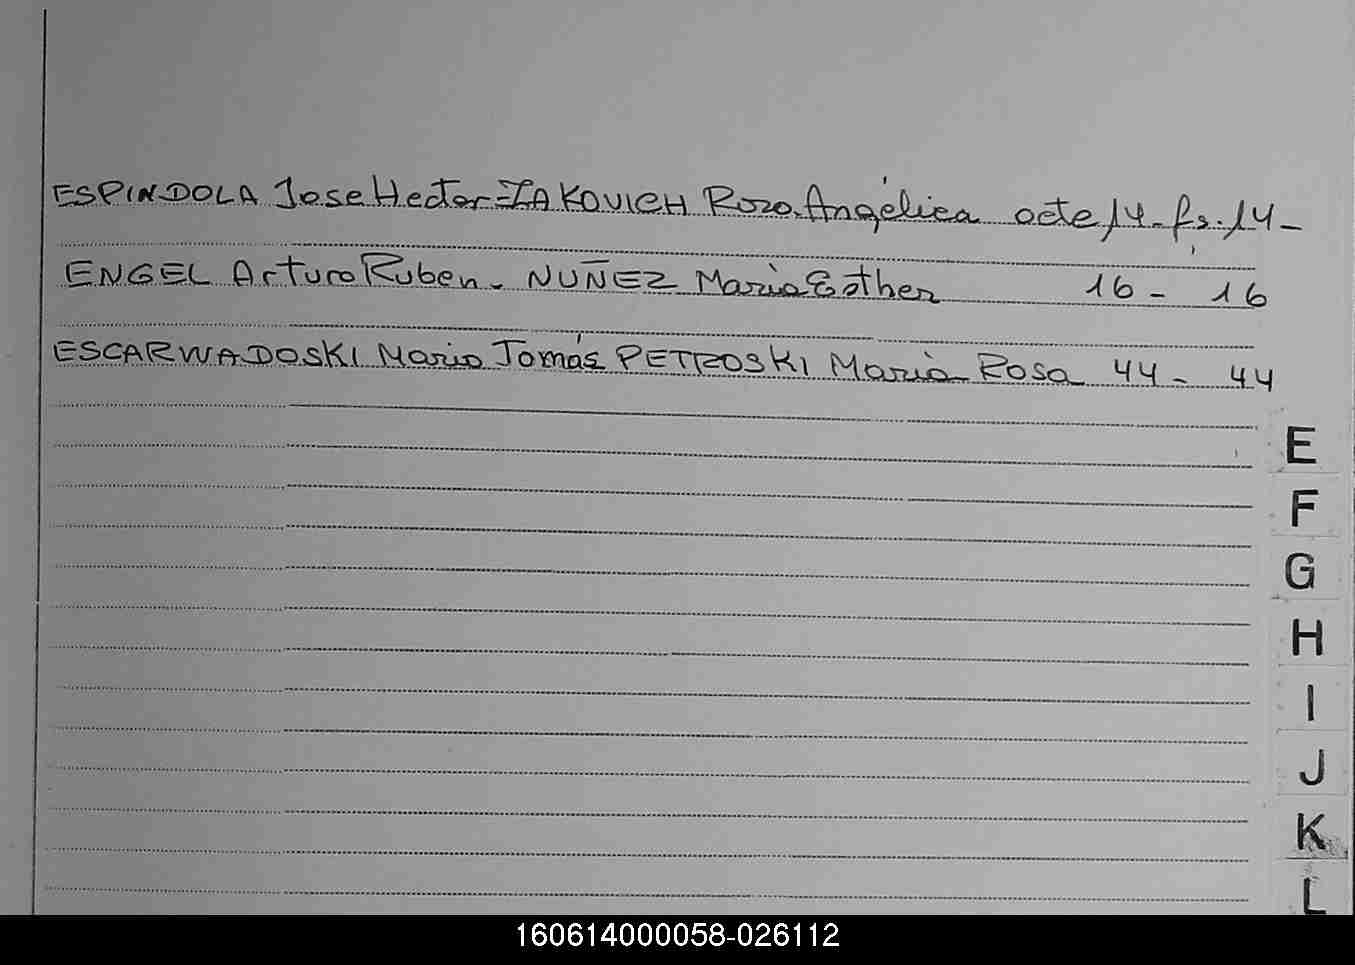 ESPINDOLA Jose Hector-ZAKOVICH Rosa Angélica acte 14-fs.14-
ENGEL Arturo Ruben - NUÑEZ Maria Esther 16 - 16
ESCARWADOSKI Mario Tomás PETROSKI Maria Rosa 44 - 44
E
F
G
H
I
J
K
L
160614000058-026112